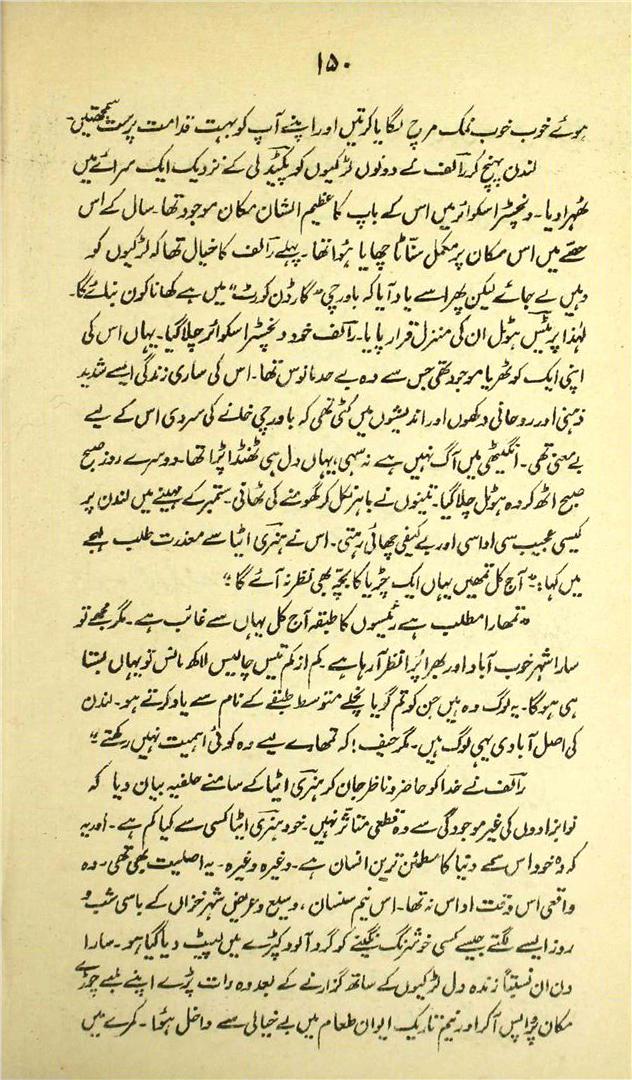 ۱۵۰
ہوئے خوب خوب نمک مرچ لگایا کرتیں اور اپنے آپ کو بہت قدامت پرست سمجھتیں۔
لندن پہنچ کر رالف نے دونوں لڑکیوں کو پکیڈلی کے نزدیک ایک سرائے میں
ٹھہرا دیا۔ ونچسٹر اسکوائر میں اس کے باپ کا عظیم الشان مکان موجود تھا۔ سال کے اس
حصے میں اس مکان پر مکمل سناٹا چھایا ہوا تھا۔ پہلے رالف کا خیال تھا کہ لڑکیوں کو
وہیں لے جائے لیکن پھر اسے یاد آیا کہ باورچی "گارڈن کورٹ" میں ہے کھانا کون بنائے گا۔
لہٰذا پرٹیس ہوٹل ان کی منزل قرار پایا۔ رالف خود ونچسٹر اسکوائر چلا گیا۔ یہاں اس کی
اپنی ایک کوٹھریا موجود تھی جس سے وہ بے حد مانوس تھا۔ اس کی ساری زندگی ایسے شدید
ذہنی اور روحانی دکھوں اور اندیشوں میں کٹی تھی کہ باورچی خانے کی سردی اس کے لیے
بے معنی تھی۔ انگیٹھی میں آگ نہیں ہے نہ سہی، یہاں دل ہی ٹھنڈا پڑا تھا۔ دوسرے روز صبح
صبح اٹھ کر وہ ہوٹل چلا گیا۔ تینوں نے باہر نکل کر گھومنے کی ٹھانی۔ ستمبر کے مہینے میں لندن پر
کیسی عجیب سی اداسی اور بے کیفی چھائی رہتی۔ اس نے ہنری اٹیا سے معذرت طلب لہجے
میں کہا: "آج کل تمھیں یہاں ایک چڑیا کا بچہ بھی نظر نہ آئے گا"
"تمھارا مطلب ہے رئیسوں کا طبقہ آج کل یہاں سے غائب ہے۔ مگر مجھے تو
سارا شہر خوب آباد اور بھرا پُرا نظر آ رہا ہے۔ کم از کم تیس چالیس لاکھ مانس تو یہاں بستا
ہی ہو گا۔ یہ لوگ وہ ہیں جن کو تم گویا نچلے متوسط طبقے کے نام سے یاد کرتے ہو۔ لندن
کی اصل آبادی یہی لوگ ہیں۔ مگر حیف! کہ تمھارے لیے وہ کوئی اہمیت نہیں رکھتے"
رالف نے خدا کو حاضر و ناظر جان کر ہنری اٹیا کے سامنے حلفیہ بیان دیا کہ
نوابزادوں کی غیر موجودگی سے وہ قطعی متاثر نہیں۔ خود ہنری اٹیا کسی سے کیا کم ہے۔ اور یہ
کہ وہ خود اس سمے دنیا کا مطمئن ترین انسان ہے۔ وغیرہ وغیرہ۔ یہ اصلیت بھی تھی۔ وہ
واقعی اس وقت اداس نہ تھا۔ اس نیم سنسان، وسیع و عریض شہر خزاں کے باسی شب و
روز ایسے لگتے جیسے کسی خوشرنگ نگینے کو گرد آلود کپڑے میں لپیٹ دیا گیا ہو۔ سارا
دن ان نسبتاً زندہ دل لڑکیوں کے ساتھ گزارنے کے بعد وہ رات پڑے اپنے لمبے چوڑے
مکان پر واپس آ کر اور نیم تاریک ایوان طعام میں بے خیالی سے داخل ہوا۔ کمرے میں